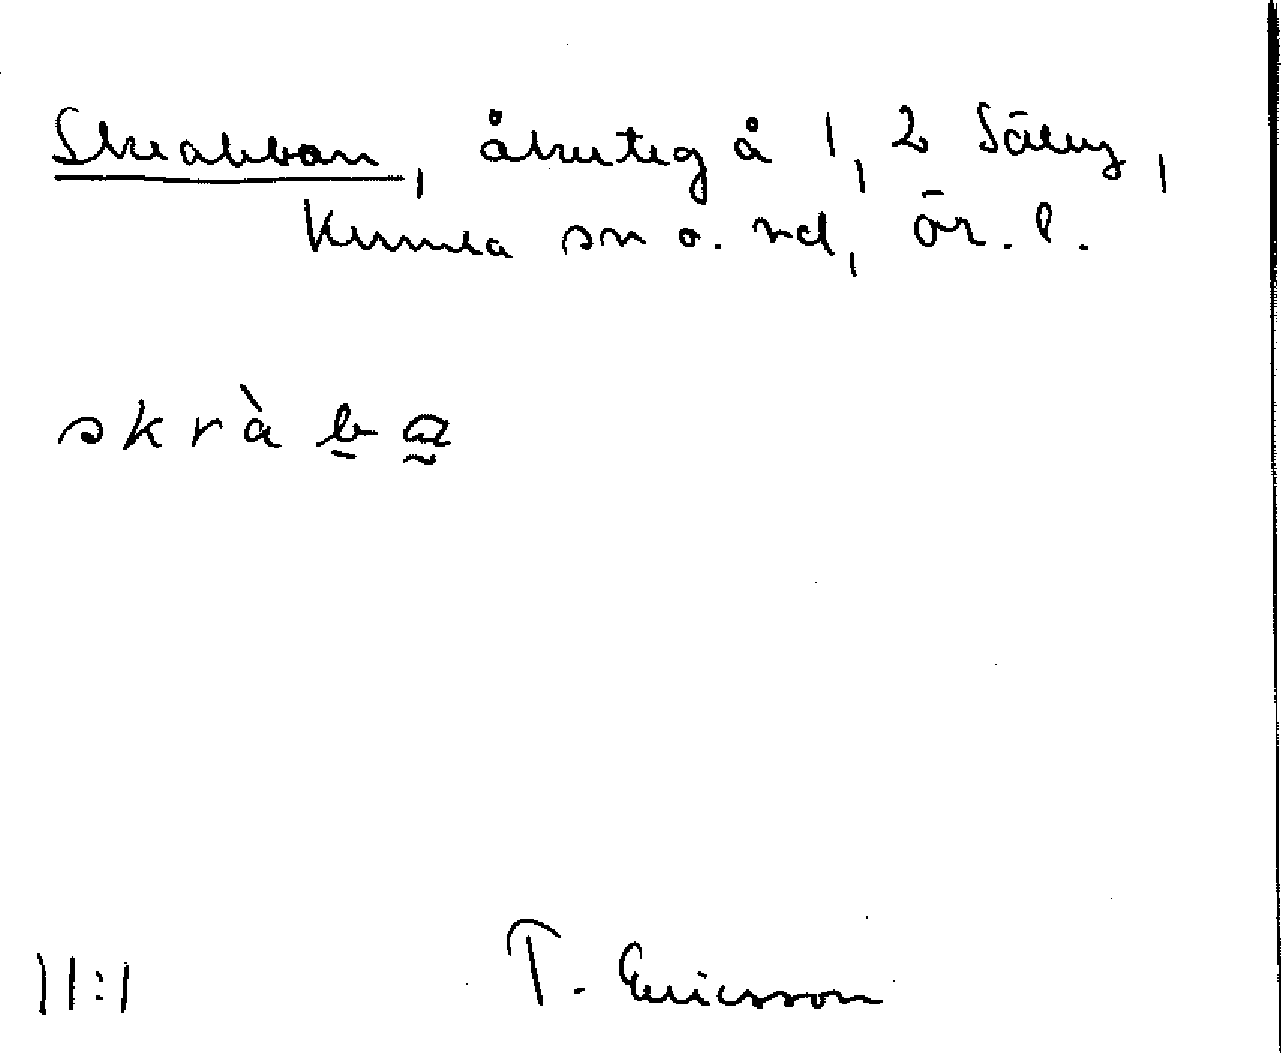 Skrabban, åkerteg å 1, 2 Säby,
Kumla sn o. hd, Ör. l.
skràba
11:1 T. Ericsson